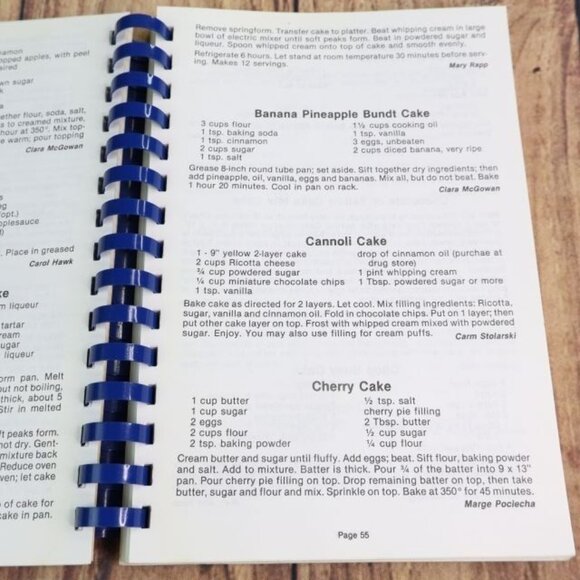 nnamon
opped apples, with peel
ired
wn sugar
k
ether flour, soda, salt,
s to creamed mixture.
hour at 350°. Mix top-
e warm; pour topping
Clara McGowan
eg
(opt.)
pplesauce
. Place in greased
Carol Hawk
ke
m liqueur
tartar
ream
sugar
liqueur
orm pan. Melt
but not boiling,
thick, about 5
Stir in melted
ft peaks form.
not dry. Gent-
mixture back
Reduce oven
ven; let cake
of cake for
cake in pan.
Remove springform. Transfer cake to platter. Beat whipping cream in large
bowl of electric mixer until soft peaks form. Beat in powdered sugar and
liqueur. Spoon whipped cream onto top of cake and smooth evenly.
Refrigerate 6 hours. Let stand at room temperature 30 minutes before serv-
ing. Makes 12 servings.
Mary Rapp
Banana Pineapple Bundt Cake
3 cups flour
1 tsp. baking soda
1 tsp. cinnamon
2 cups sugar
1 tsp. salt
1½ cups cooking oil
1 tsp. vanilla
3 eggs, unbeaten
2 cups diced banana, very ripe
Grease 8-inch round tube pan; set aside. Sift together dry ingredients; then
add pineapple, oil, vanilla, eggs and bananas. Mix all, but do not beat. Bake
1 hour 20 minutes. Cool in pan on rack.
Clara McGowan
Cannoli Cake
1 - 9" yellow 2-layer cake
2 cups Ricotta cheese
¾ cup powdered sugar
¼ cup miniature chocolate chips
1 tsp. vanilla
drop of cinnamon oil (purchae at
drug store)
1 pint whipping cream
1 Tbsp. powdered sugar or more
Bake cake as directed for 2 layers. Let cool. Mix filling ingredients: Ricotta,
sugar, vanilla and cinnamon oil. Fold in chocolate chips. Put on 1 layer; then
put other cake layer on top. Frost with whipped cream mixed with powdered
sugar. Enjoy. You may also use filling for cream puffs.
Carm Stolarski
Cherry Cake
1 cup butter
1 cup sugar
2 eggs
2 cups flour
2 tsp. baking powder
½ tsp. salt
cherry pie filling
2 Tbsp. butter
½ cup sugar
¼ cup flour
Cream butter and sugar until fluffy. Add eggs; beat. Sift flour, baking powder
and salt. Add to mixture. Batter is thick. Pour ¾ of the batter into 9 x 13"
pan. Pour cherry pie filling on top. Drop remaining batter on top, then take
butter, sugar and flour and mix. Sprinkle on top. Bake at 350° for 45 minutes.
Marge Pociecha
Page 55